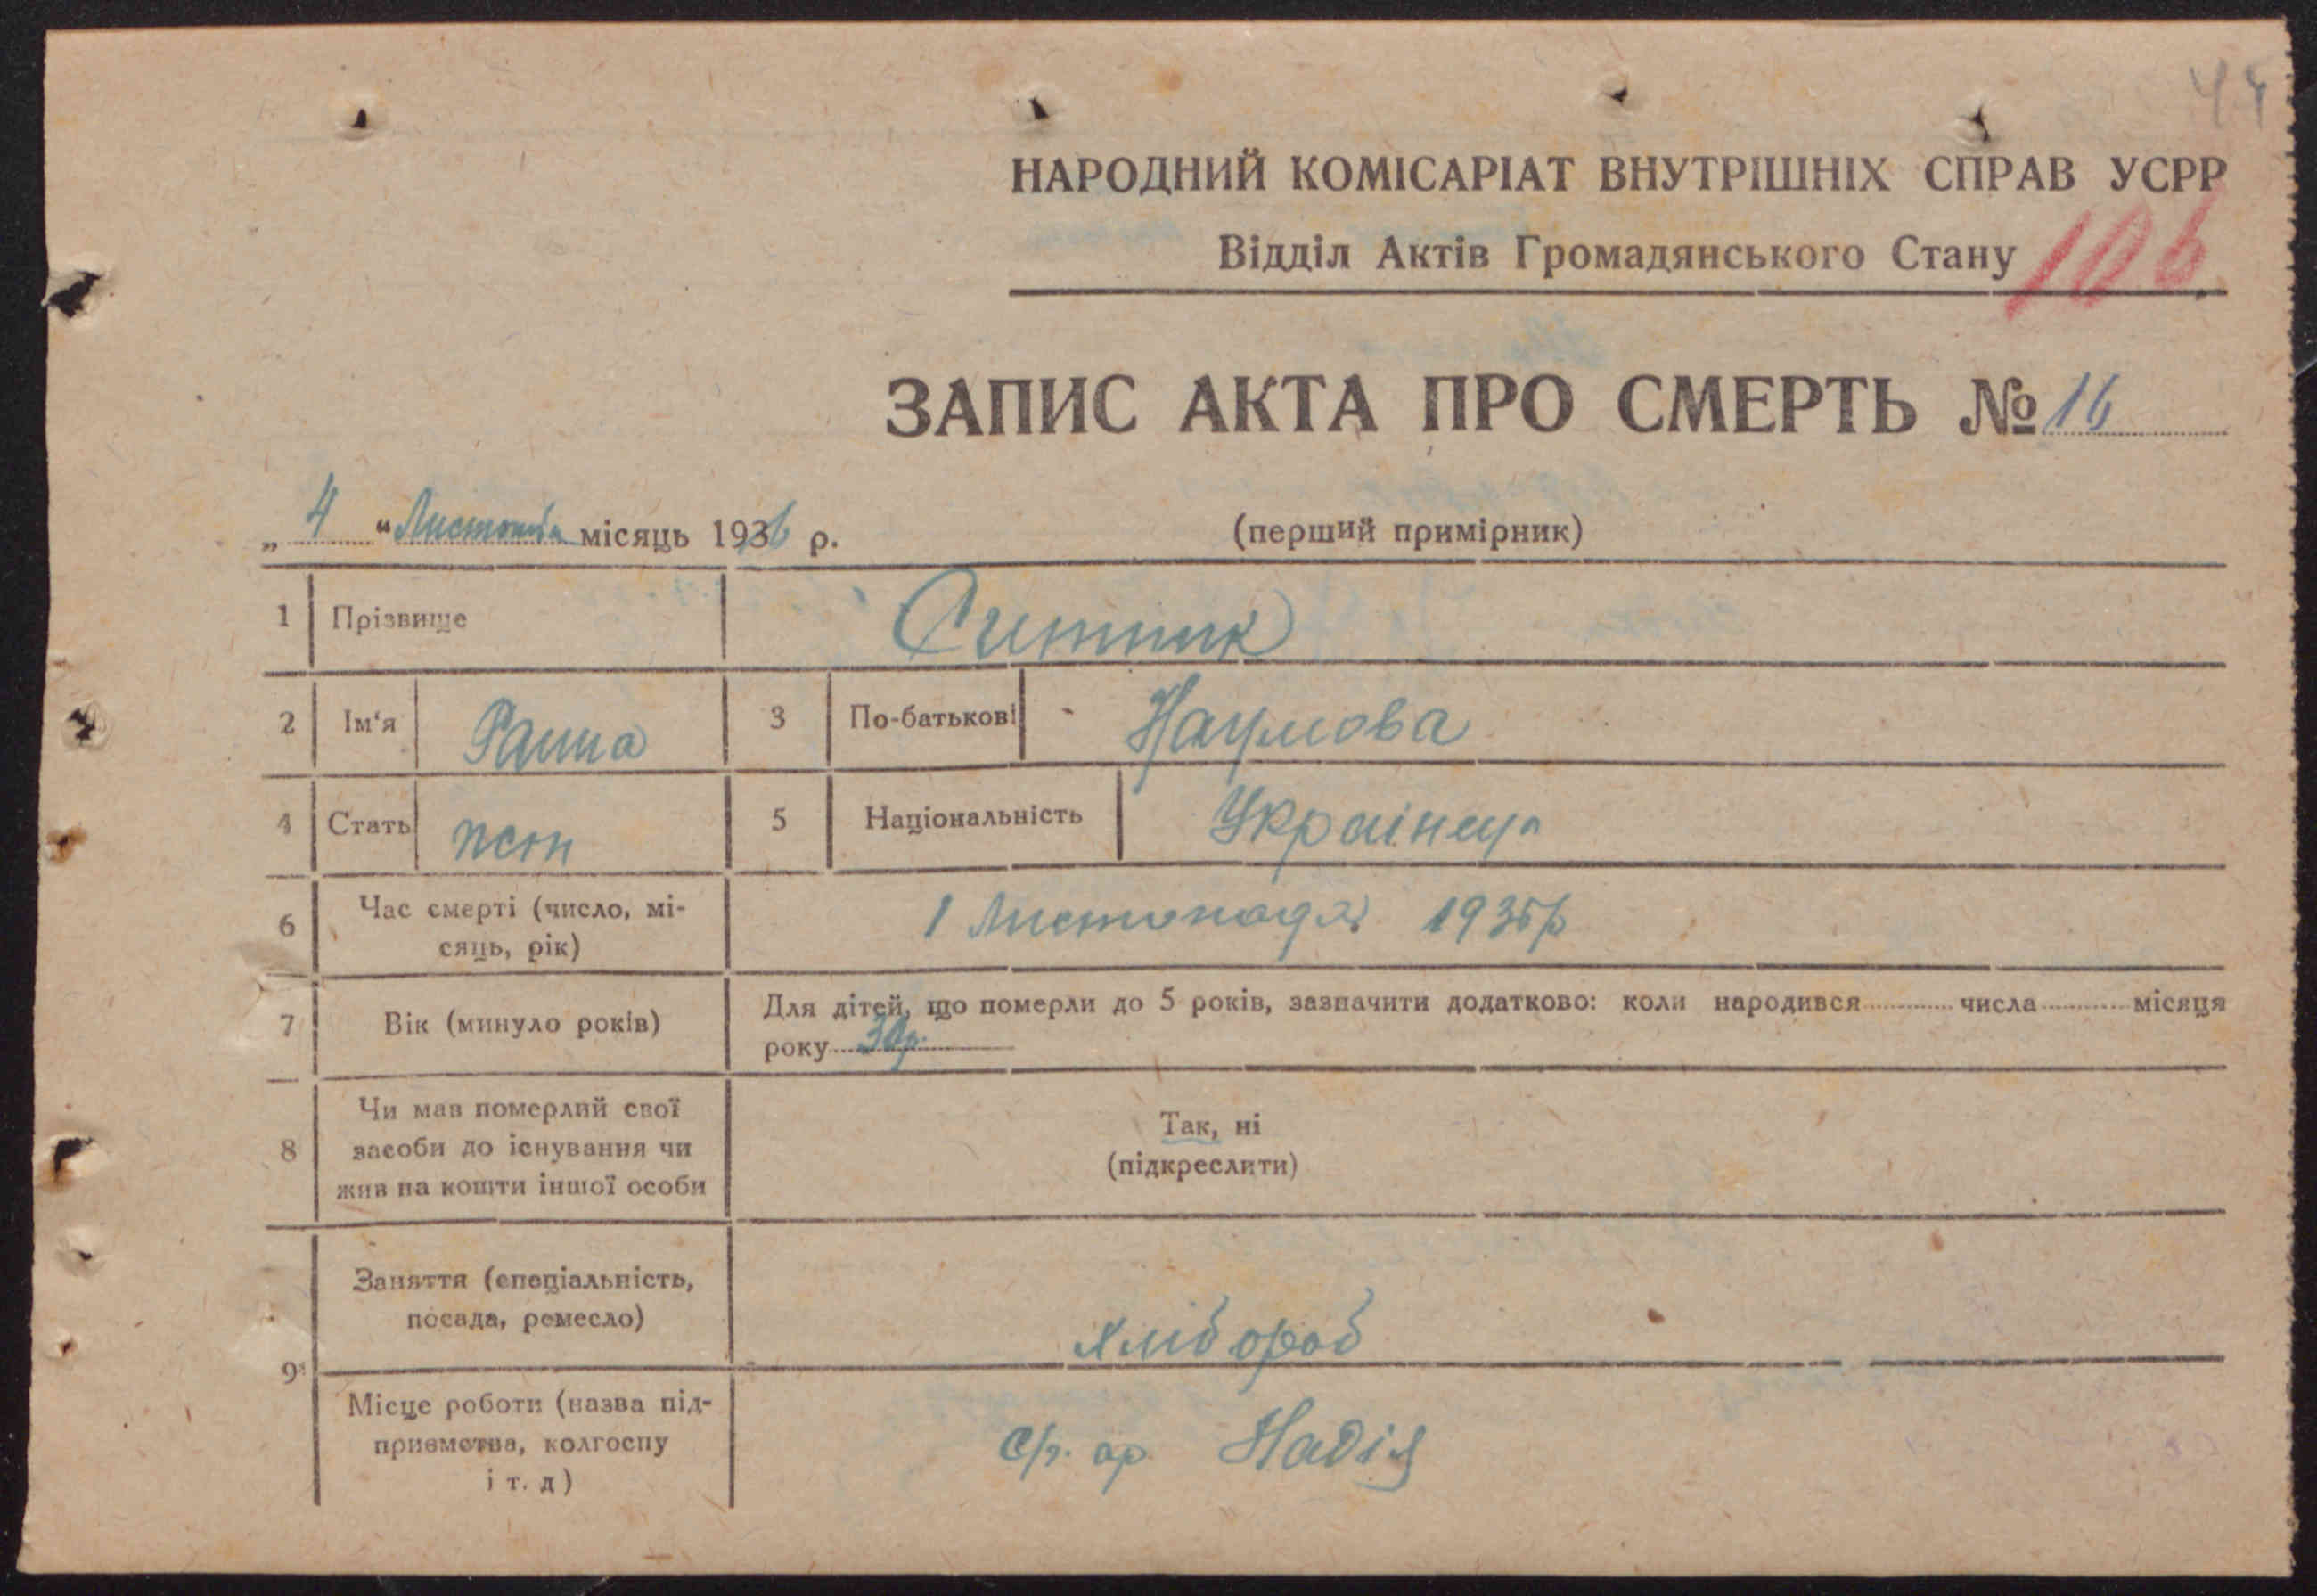 44
НАРОДНИЙ КОМІСАРІАТ ВНУТРІШНІХ СПРАВ УСРР
Відділ Актів Громадянського Стану
106
ЗАПИС АКТА ПРО СМЕРТЬ № 16
„ 4 “ Листопада місяць 1936 р. (перший примірник)
1 Прізвище Ситник
2 Ім'я Ганна 3 По-батькові Наумова
4 Стать жін 5 Національність Українця
6 Час смерті (число, мі-
сяць, рік) 1 Листопада 1936р
7 Вік (минуло років) Для дітей, що померли до 5 років, зазначити додатково: коли народився числа місяця
року 30р.
8 Чи мав померлий свої
засоби до існування чи
жив на кошти іншої особи
Так, ні
(підкреслити)
9 Заняття (спеціальність,
посада, ремесло) хлібороб
Місце роботи (назва під-
приємства, колгоспу
і т. д) ар. Надія